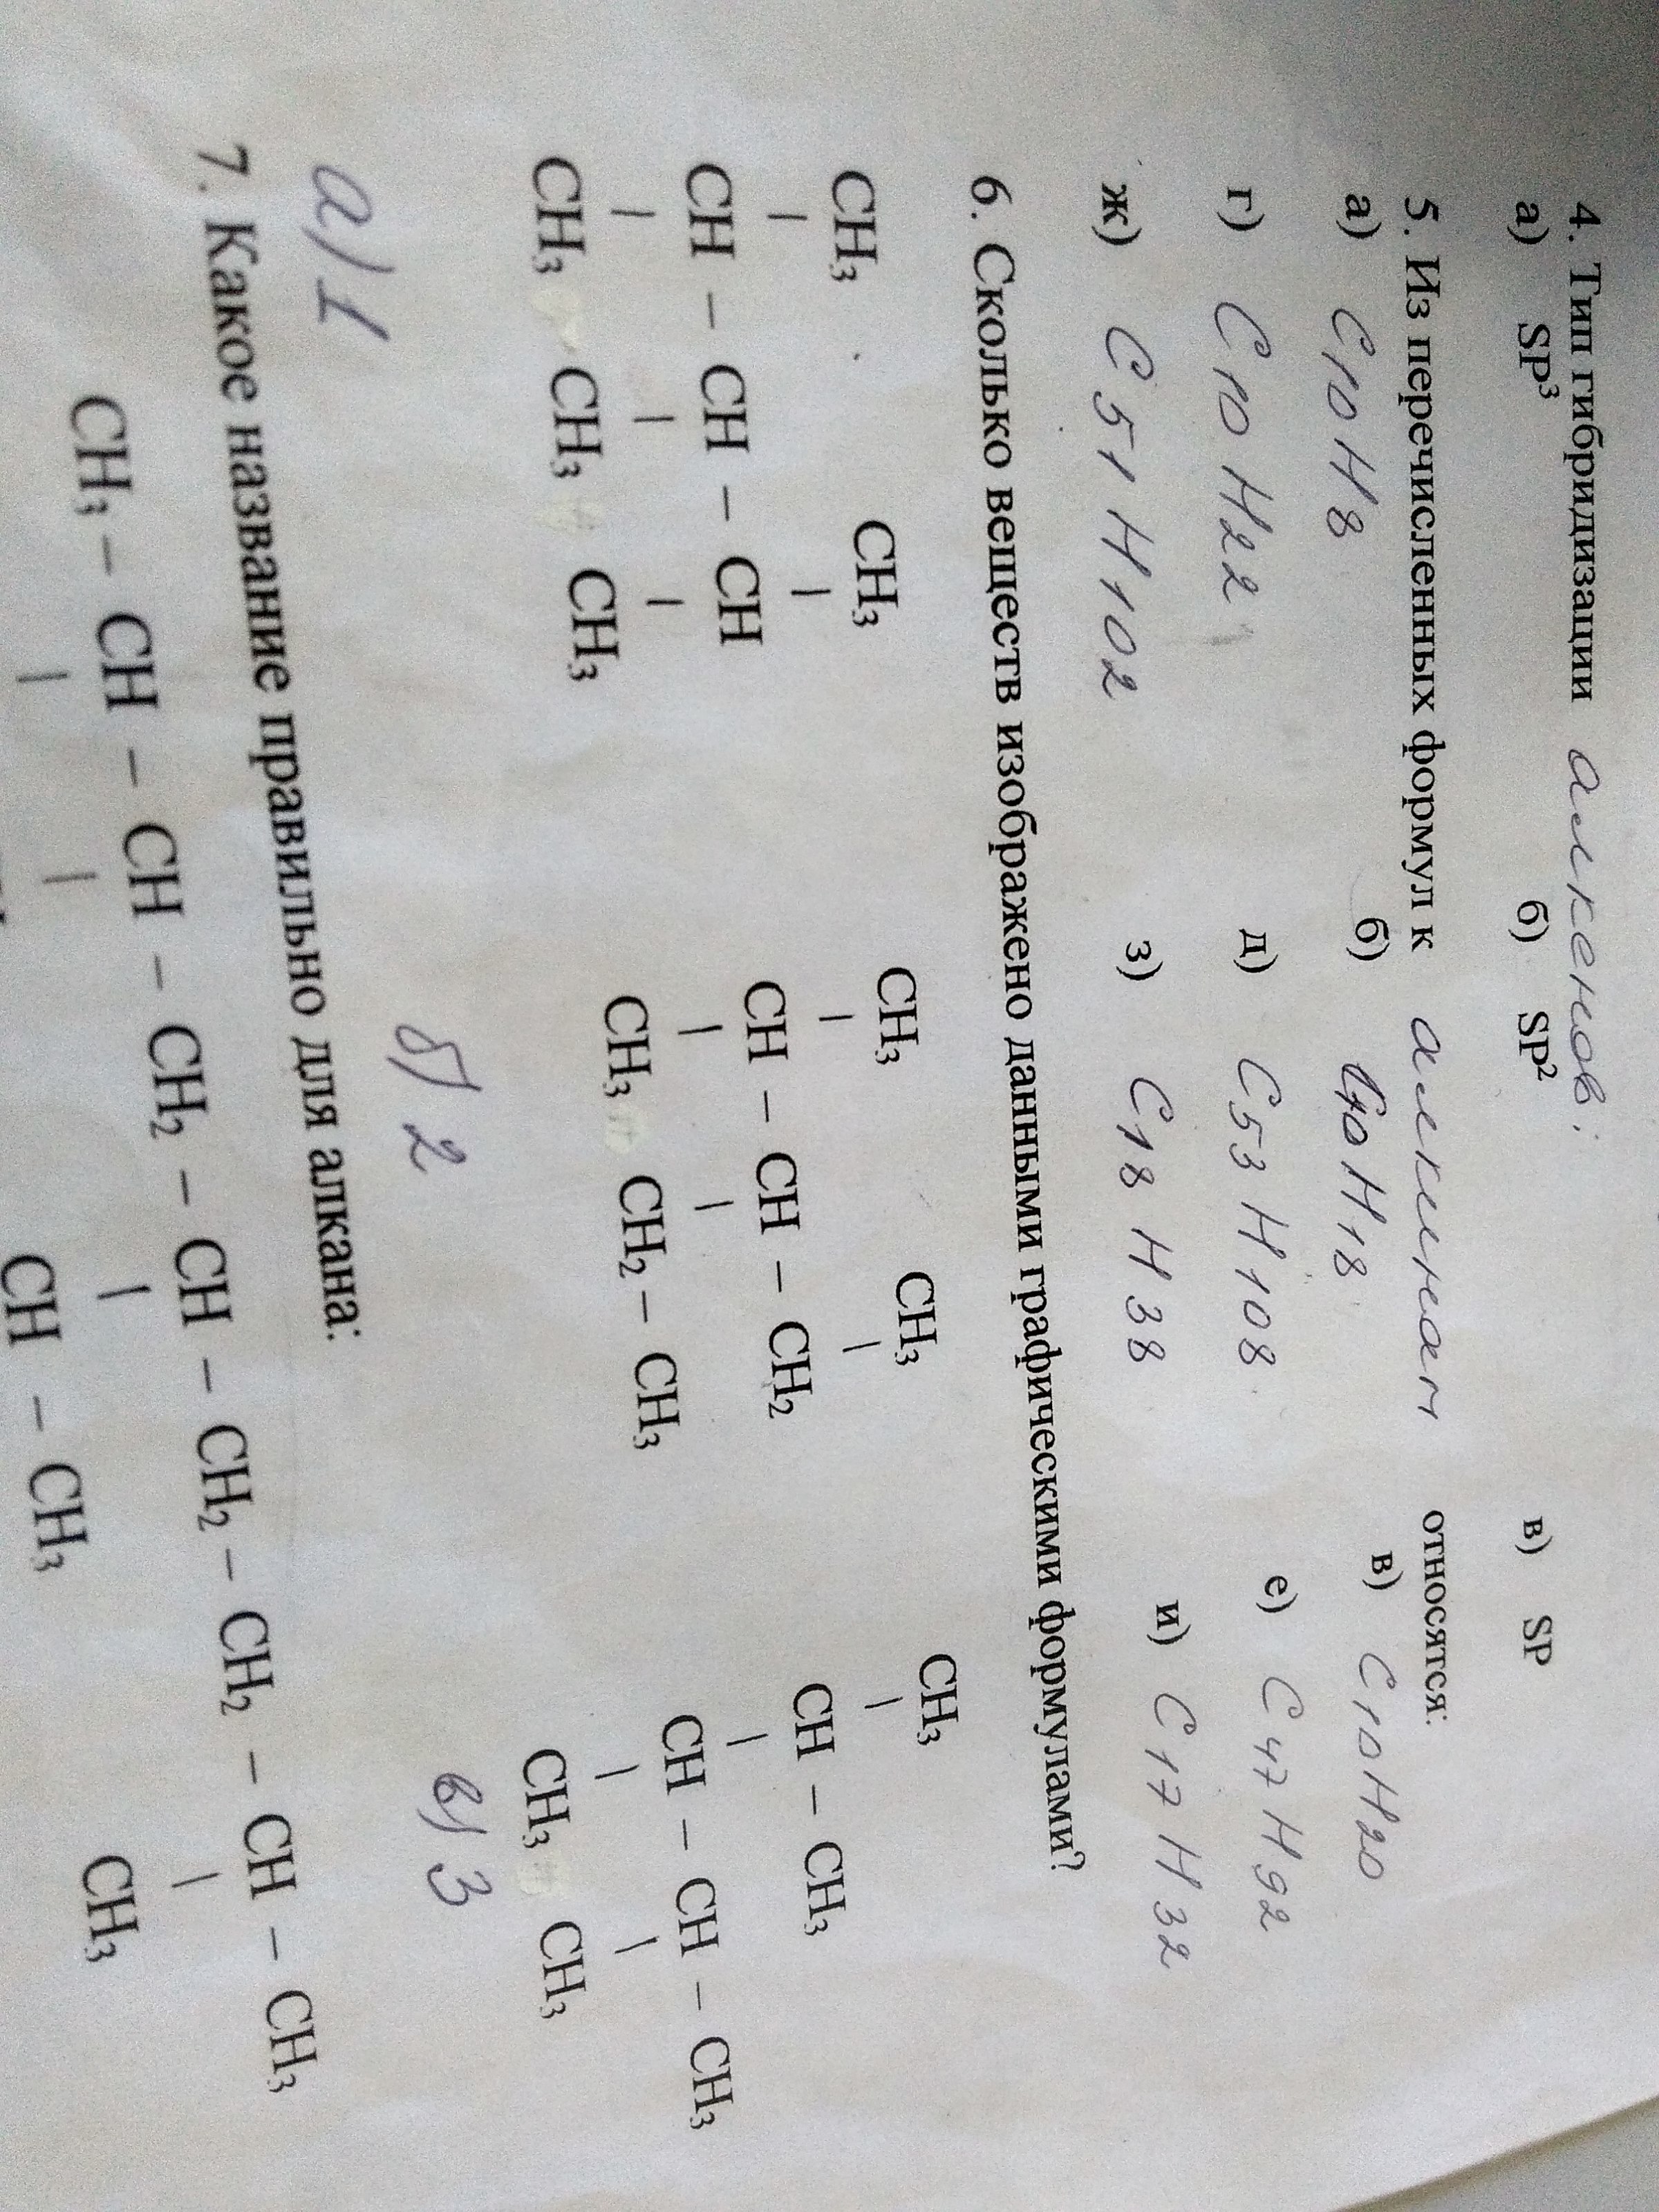 4. Тип гибридизации алкенов:
а) SP³ б) SP² в) SP
5. Из перечисленных формул к алкинам относятся:
а) C10H8 б) C10H18 в) C10H20
г) C10H22 д) C53H108 е) C47H92
ж) C51H102 з) C18H38 и) C17H32
6. Сколько веществ изображено данными графическими формулами?
CH₃ CH₃ CH₃ CH₃ CH₃
CH – CH – CH CH – CH – CH₂ CH – CH₃
CH₃ CH₃ CH₃ CH₃ CH₂ – CH₃ CH – CH – CH₃
CH₃ CH₃
а) 1 б) 2 в) 3
7. Какое название правильно для алкана:
CH₃ – CH – CH – CH₂ – CH – CH₂ – CH₂ – CH – CH₃
CH – CH₃ CH₃